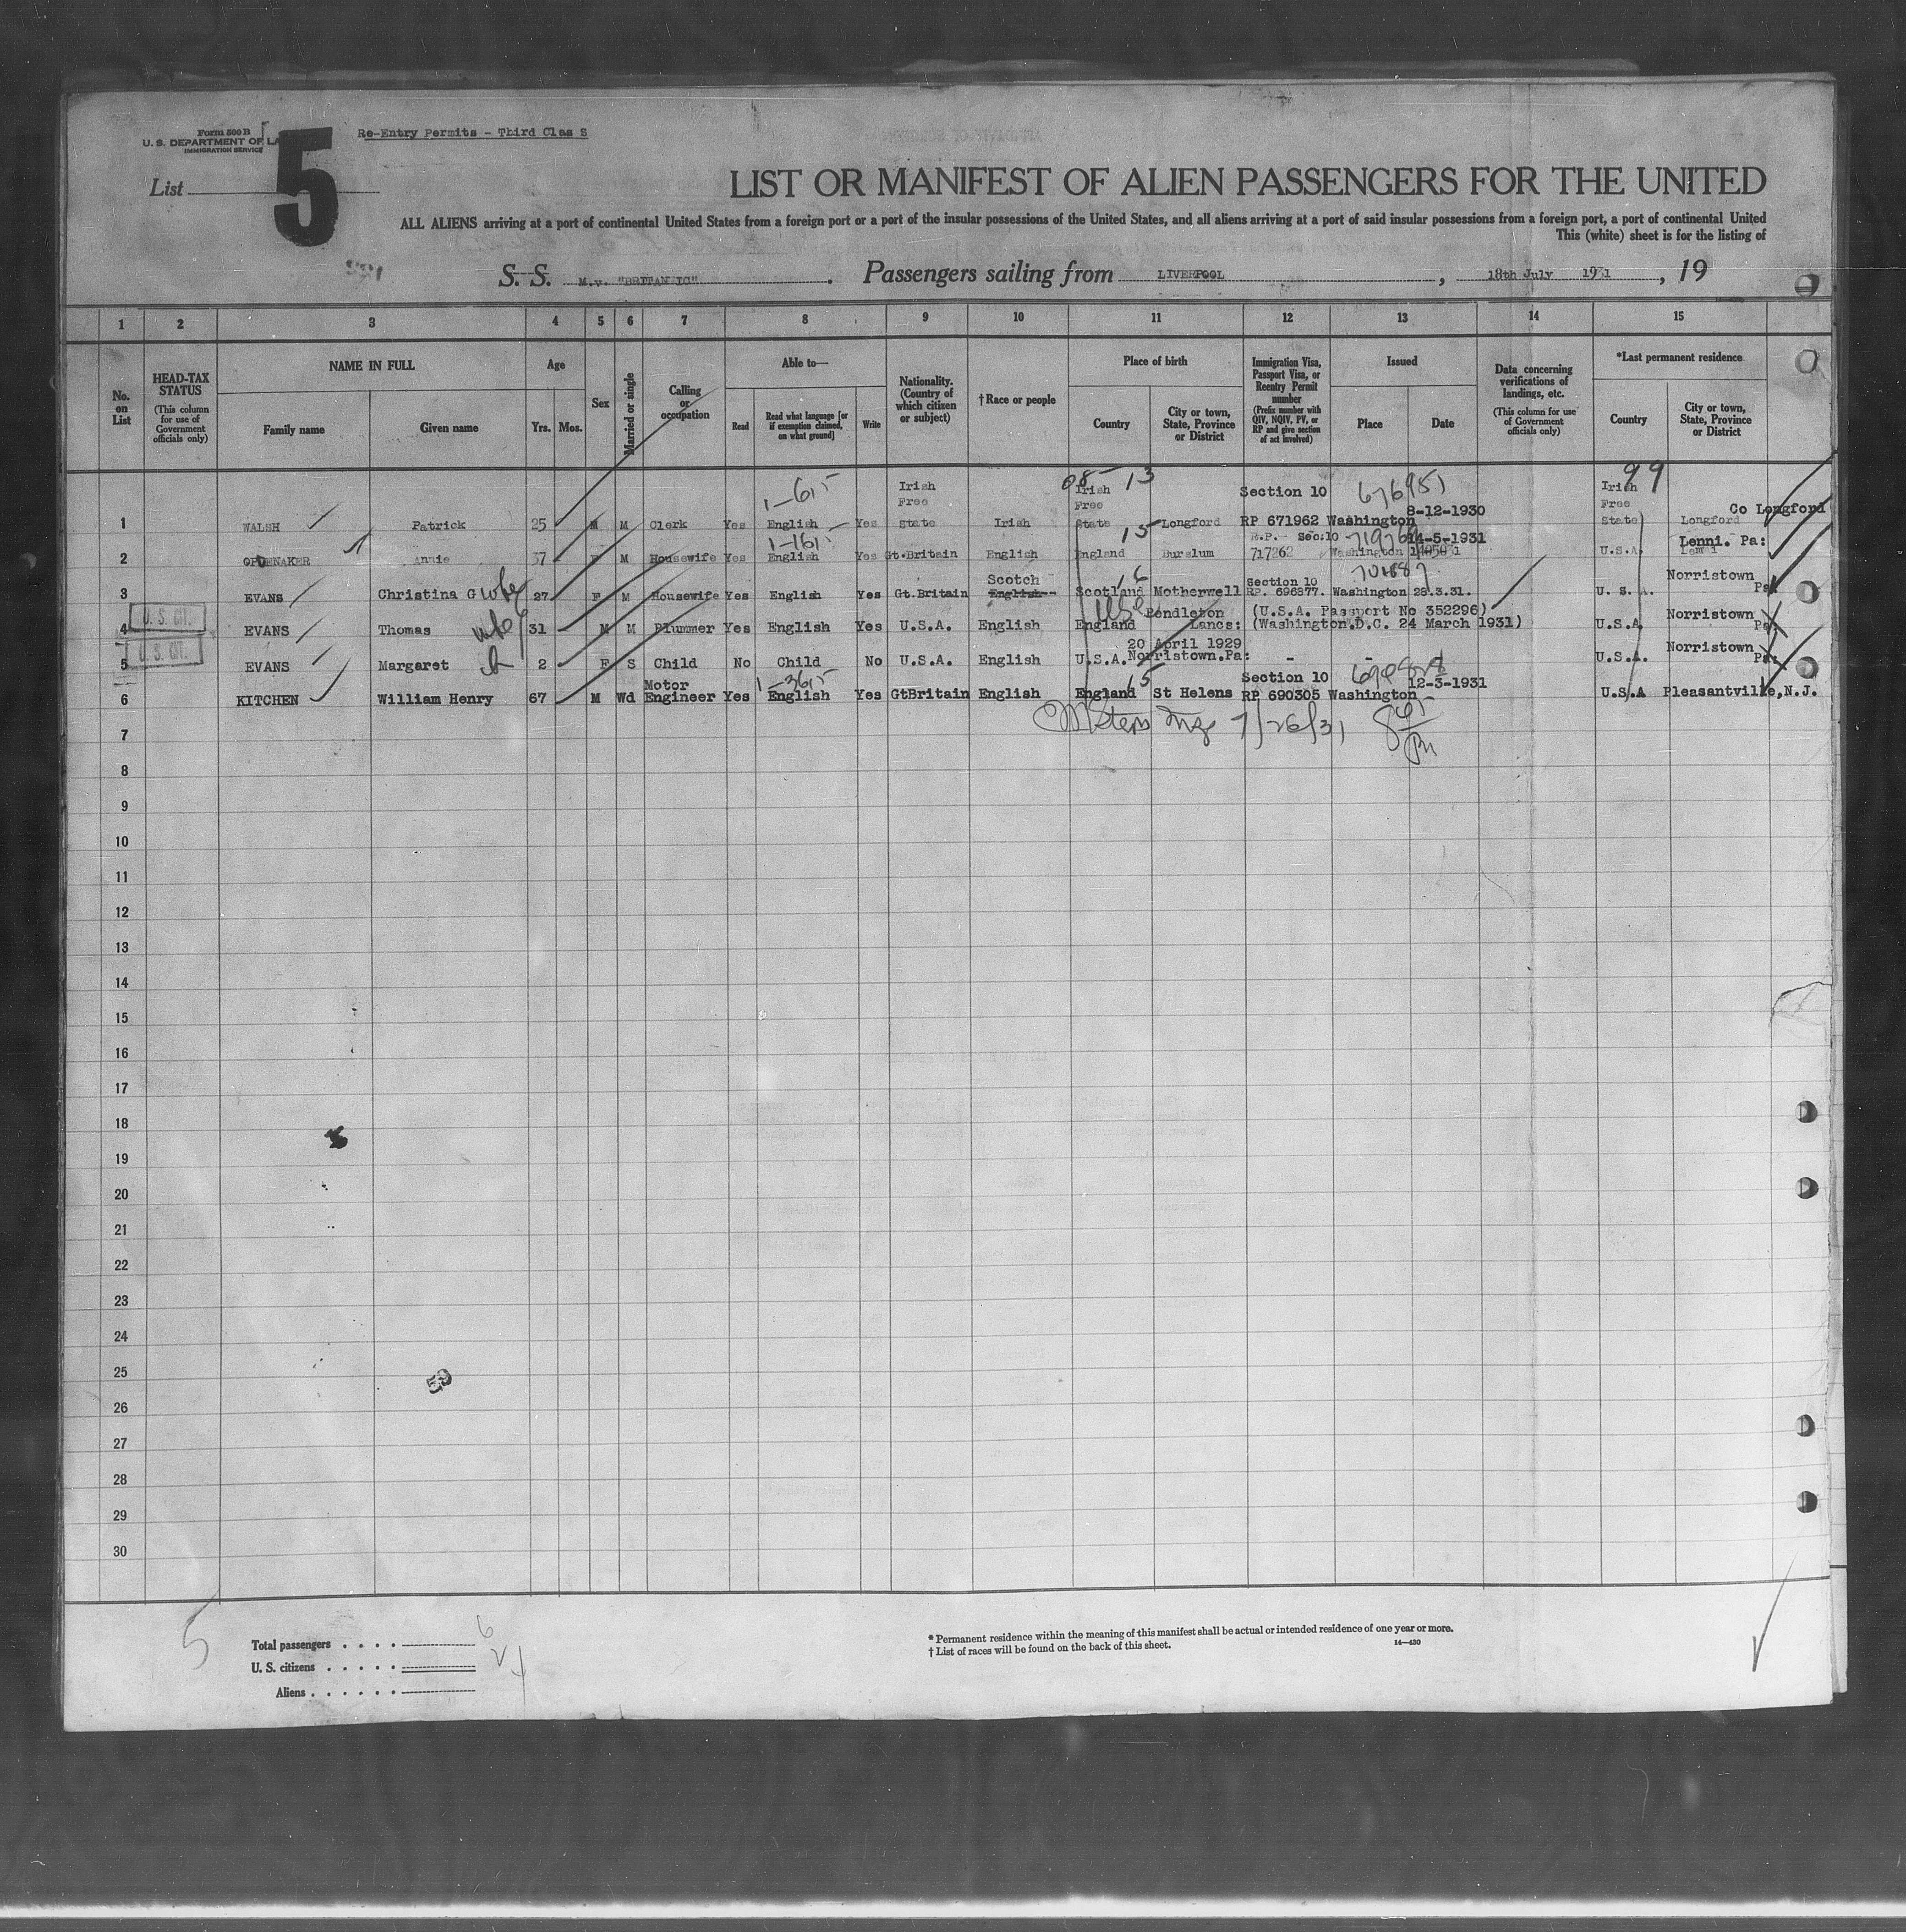 Form 500 B
U. S. DEPARTMENT OF LA
IMMIGRATION SERVICE
Re-Entry Permits - Third Clas S
List
5
LIST OR MANIFEST OF ALIEN PASSENGERS FOR THE UNITED
ALL ALIENS arriving at a port of continental United States from a foreign port or a port of the insular possessions of the United States, and all aliens arriving at a port of said insular possessions from a foreign port, a port of continental United
This (white) sheet is for the listing of
S. S. M.v. "BRITANNIC". Passengers sailing from LIVERPOOL, 18th July 1931, 19
1 2 3 4 5 6 7 8 9 10 11 12 13 14 15
No. on List
HEAD-TAX STATUS (This column for use of Government officials only)
NAME IN FULL
Family name Given name
Age
Yrs. Mos.
Sex
Married or single
Calling or occupation
Able to—
Read Read what language [or if exemption claimed, on what ground] Write
Nationality. (Country of which citizen or subject)
†Race or people
Place of birth
Country City or town, State, Province or District
Immigration Visa, Passport Visa, or Reentry Permit number (Prefix number with QIV, NQIV, PV, or RP and give section of act involved)
Issued
Place Date
Data concerning verifications of landings, etc. (This column for use of Government officials only)
*Last permanent residence
Country City or town, State, Province or District
08 13 99
1-615 Irish Irish Section 10 676951 Irish
Free Free 8-12-1930 Free Co Longford
1 WALSH Patrick 25 M M Clerk Yes English Yes State Irish State Longford RP 671962 Washington State Longford
1-1615 15 R.P. Sec:10 14-5-1931 Lenni. Pa:
2 Annie 37 F M Housewife Yes English Yes Gt.Britain English England Burslum 717262 Washington U.S.A.
Scotch 16 Section 10 Norristown
3 EVANS Christina G 27 F M Housewife Yes English Yes Gt.Britain English-- Scotland Motherwell RP. 696877. Washington 28.3.31. U. S. A. Pa
U. S. CIT. Pendleton (U.S.A. Passport No 352296) Norristown
4 EVANS Thomas 31 M M Plummer Yes English Yes U.S.A. English England Lancs: (Washington.D.C. 24 March 1931) U.S.A. Pa
U. S. CIT. 20 April 1929 Norristown
5 EVANS Margaret 2 F S Child No Child No U.S.A. English U.S.A. Norristown.Pa: - - U.S.A. Pa:
Motor 1-3615 15 Section 10 12-3-1931
6 KITCHEN William Henry 67 M Wd Engineer Yes English Yes GtBritain English England St Helens RP 690305 Washington U.S.A Pleasantville,N.J.
7/26/31
7
8
9
10
11
12
13
14
15
16
17
18
19
20
21
22
23
24
25
26
27
28
29
30
5
Total passengers . . . . 6
U. S. citizens . . . . . 2
Aliens . . . . . . 4
* Permanent residence within the meaning of this manifest shall be actual or intended residence of one year or more.
† List of races will be found on the back of this sheet.
14—430